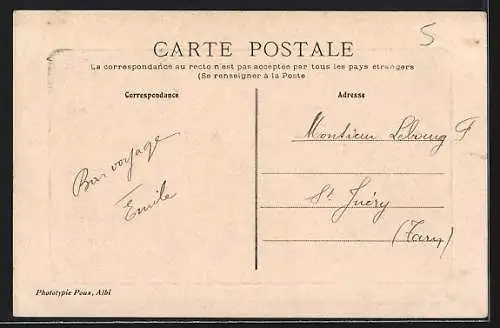 5
CARTE POSTALE
La correspondance au recto n'est pas acceptée par tous les pays étrangers
(Se renseigner à la Poste
Correspondance
Adresse
Bon voyage
Emile
Monsieur
St Juéry
(Tarn)
Phototypie Poux, Albi